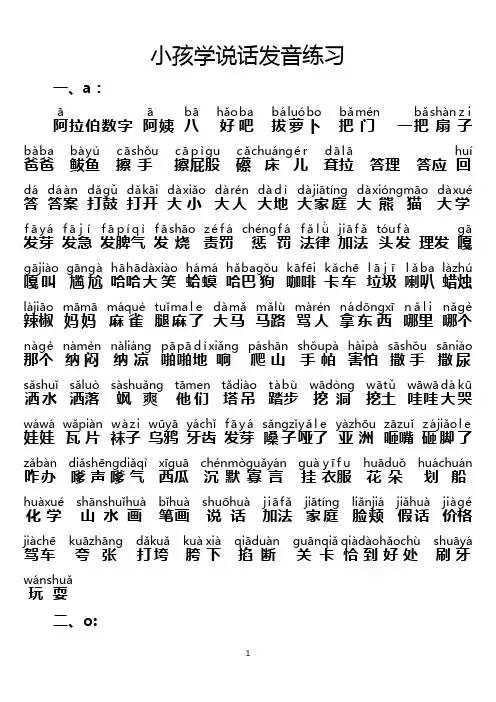 小孩学说话发音练习
一、a：
ā ā bā hǎoba báluóbo bǎmén bǎshànzi
阿拉伯数字 阿姨 八 好吧 拔萝卜 把门 一把扇子
bàba bàyú cāshǒu cāpìgu cǎchuángér dālā huí
爸爸 鲅鱼 擦手 擦屁股 礤床儿 耷拉 答理 答应 回
dá dáàn dǎgǔ dǎkāi dàxiǎo dàrén dàdì dàjiātíng dàxióngmāo dàxué
答 答案 打鼓 打开 大小 大人 大地 大家庭 大熊猫 大学
fāyá fājí fāpíqì fāshāo zéfá chéngfá fǎlǜ jiāfǎ tóufà gā
发芽 发急 发脾气 发烧 责罚 惩罚 法律 加法 头发 理发 嘎
gājiào gāngà hāhādàxiào hámá hǎbagǒu kāfēi kǎchē lājī lǎba làzhú
嘎叫 尴尬 哈哈大笑 蛤蟆 哈巴狗 咖啡 卡车 垃圾 喇叭 蜡烛
làjiāo māmā máquè tuǐmale dàmǎ mǎlù màrén nádōngxī nǎli nǎgè
辣椒 妈妈 麻雀 腿麻了 大马 马路 骂人 拿东西 哪里 哪个
nàgè nàmèn nàliáng pāpādìxiǎng páshān shǒupà hàipà sāshǒu sāniào
那个 纳闷 纳凉 啪啪地响 爬山 手帕 害怕 撒手 撒尿
sǎshuǐ sǎluò sàshuǎng tāmen tǎdiào tàbù wādòng wātǔ wāwādàkū
洒水 洒落 飒爽 他们 塔吊 踏步 挖洞 挖土 哇哇大哭
wáwá wǎpiàn wàzi wūyā yáchǐ fāyá sǎngzǐyǎle yàzhōu zāzuǐ zájiǎole
娃娃 瓦片 袜子 乌鸦 牙齿 发芽 嗓子哑了 亚洲 咂嘴 砸脚了
zǎbàn diǎshēngdiǎqì xīguā chénmòguǎyán guàyīfu huāduǒ huáchuán
咋办 嗲声嗲气 西瓜 沉默寡言 挂衣服 花朵 划船
huàxué shānshuǐhuà bǐhuà shuōhuà jiāfǎ jiātíng liǎnjiá jiǎhuà jiàgé
化学 山水画 笔画 说话 加法 家庭 脸颊 假话 价格
jiàchē kuāzhāng dǎkuǎ kuàxià qiāduàn guānqiǎ qiàdàohǎochù shuāyá
驾车 夸张 打垮 胯下 掐断 关卡 恰到好处 刷牙
wánshuǎ
玩耍
二、o:
1